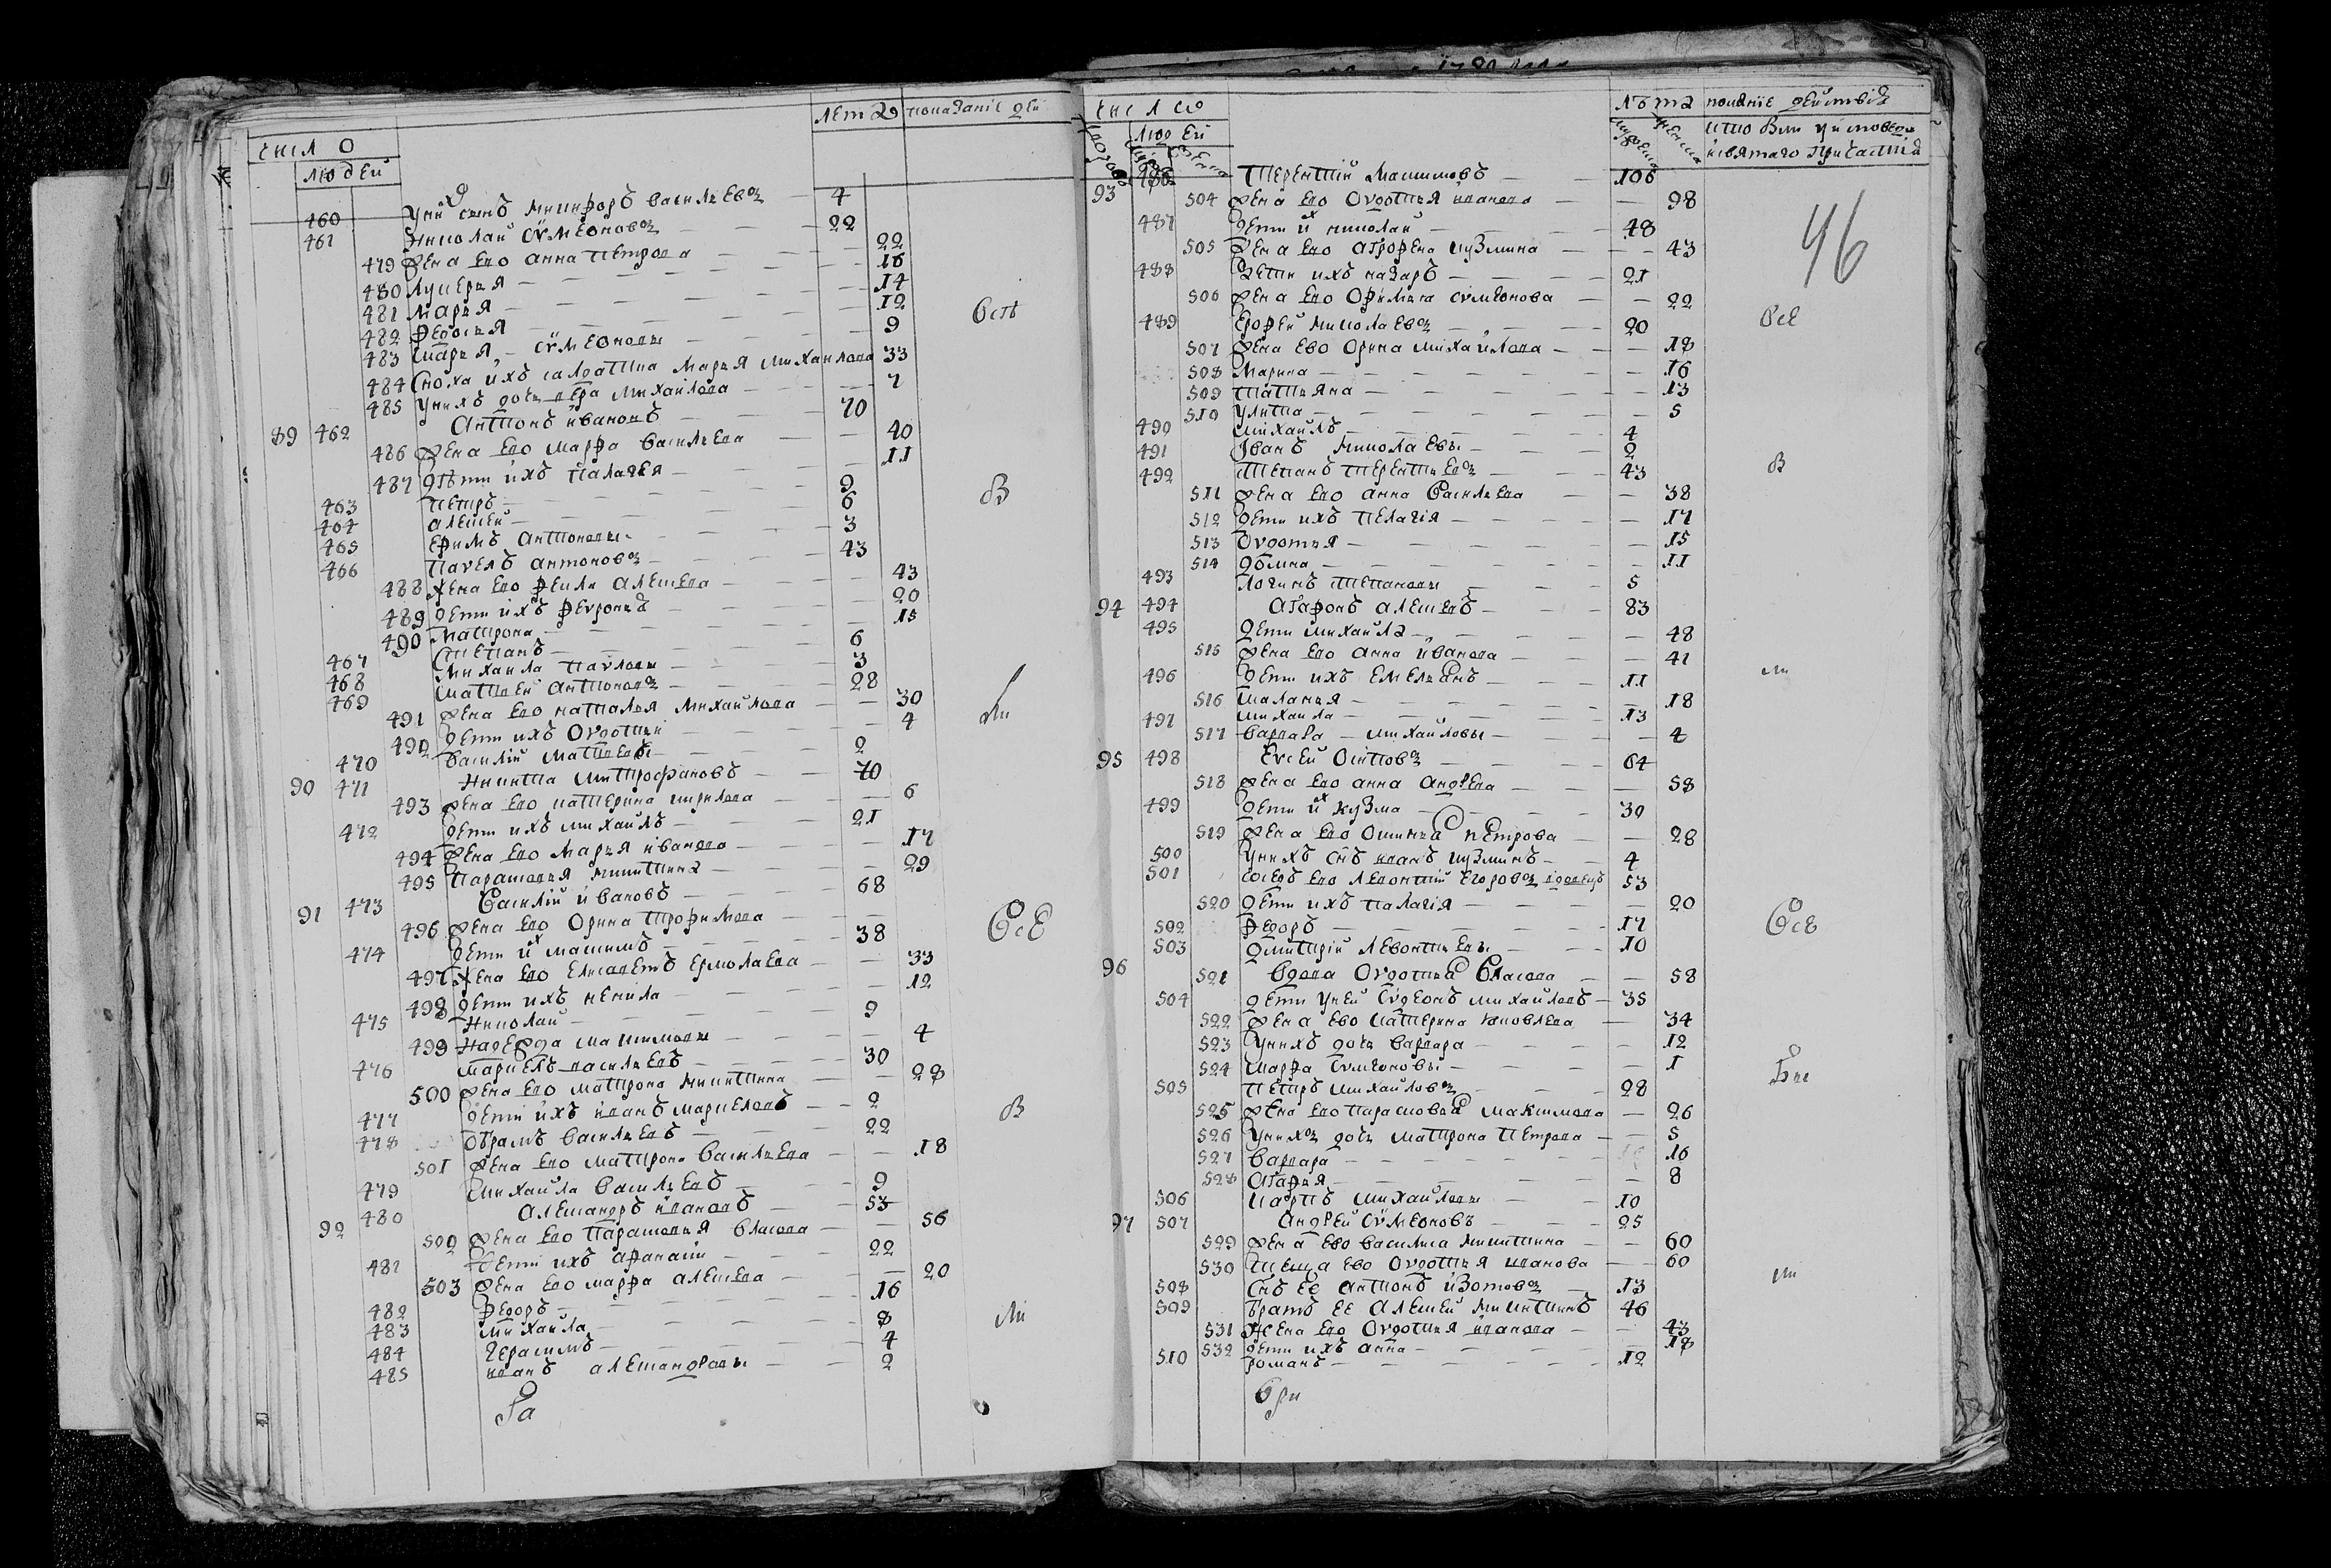 число
людей
лета
показание дей
460 У них сынъ Никифоръ Васильевъ 4
461 Николай Сѵмеоновъ 22
479 жена ево Анна Петрова 22
480 Лукерья 16
481 Марья 14
482 Федосья 12
483 Марья Сѵмеоновы 9
484 Сноха ихъ салдатка Марья Михайлова 33
485 У нихъ дочь Вера Михайлова 7
89 462 Антонъ Ивановъ 70
486 жена ево Марфа Васильева 40
487 Дѣти ихъ Палагея 11
463 Петръ 9
464 Алексей 6
465 Ефимъ Антоновы 3
466 Павелъ Антоновъ 43
488 Жена ево Фекла Алексеева 43
489 дети ихъ Февронья 20
490 Матрона 15
467 Степанъ 6
468 Михаила Павловы 3
469 Матвей Антоновъ 28
491 жена ево Наталья Михайлова 30
492 дети ихъ Овдотья 4
470 Василий Матвеевы 2
90 471 Никита Митрофановъ 70
493 жена ево Катерина Кирилова 6
472 дети ихъ Михайлъ 21
494 жена ево Марья Иванова 17
495 Парасковья Никитина 29
91 473 Василий Ивановъ 68
496 жена ево Орина Трофимова
474 дети их Максимъ 38
497 Жена ево Елисаветъ Ермолаева 33
498 дети ихъ Ненила 12
475 Николай 9
499 Надежда Максимовы 4
476 Маркелъ Васильевъ 30
500 жена ево Матрона Никитина 28
477 дети ихъ Иванъ Маркеловъ 2
478 Обрамъ Васильевъ 22
501 жена ево Матрона Васильева 18
479 Михайла Васильевъ 9
92 480 Александръ Ивановъ 53
502 жена ево Парасковья Власова 56
481 дети ихъ Афанасий 22
503 жена ево Марфа Алексеева 20
482 Федоръ 16
483 Михайла 8
484 Герасимъ 4
485 Иванъ Александровы 2
Всѣ
В
Ли
Все
В
Ли
Ра
число
дворовъ
людей
лѣта
показние действія
кто был у исповеди
и святаго причастія
46
93 486 Терентий Максимовъ 106
504 жена ево Овдотья Иванова 98
487 дети их Николай 48
505 жена ево Аграфена Кузмина 43
488 Дети ихъ Назаръ 21
506 жена ево Офимья Сѵмеонова 22
489 Ерофей Николаевъ 20
507 жена ево Орина Михайлова 18
508 Марина 16
509 Татьяна 13
510 Улита 5
490 Михайлъ 4
491 Иванъ Николаевы 2
492 Степанъ Терентьевъ 43
511 жена ево Анна Васильева 38
512 дети ихъ Пелагія 17
513 Овдотья 15
514 Домна 11
493 Логинъ Степановы 5
94 494 Агафонъ Алексеевъ 83
495 дети Михайла 48
515 жена ево Анна Иванова 41
496 дети ихъ Емельянъ 11
516 Маланья 18
497 Михаила 13
517 Варвара Михайловы 4
95 498 Евсей Осиповъ 64
518 жена ево Анна Андреева 58
499 дети их Кузма 30
519 жена ево Оксинья Петрова 28
500 У нихъ снъ Иванъ Кузминъ 4
501 сосѣдъ ево Леонтий Егоровъ вдовецъ 53
520 дети ихъ Палагія 20
502 Федоръ 17
503 Дмитрий Левонтьевы 10
96 521 Вдова Овдотья Власова 58
504 дети у ней Сѵмеонъ Михайловъ 35
522 жена ево Катерина Яковлева 34
523 У нихъ дочь Варвара 12
524 Марфа Сѵмеоновы 1
505 Петръ Михайловъ 28
525 жена ево Парасковья Максимова 26
526 У нихъ дочь Матрона Петрова 5
527 Варвара 16
528 Агафья 8
506 Карпъ Михайловы 10
97 507 Андрей Сѵмеоновъ 25
529 жена ево Василиса Никитина 60
530 Теща ево Овдотья Иванова 60
508 Снъ ее Антонъ Изотовъ 13
509 Братъ ее Алексей Никитинъ 46
531 Жена ево Овдотья Иванова 43
532 дети ихъ Анна 18
510 Романъ 12
Все
В
ли
Все
Бы
ли
бри